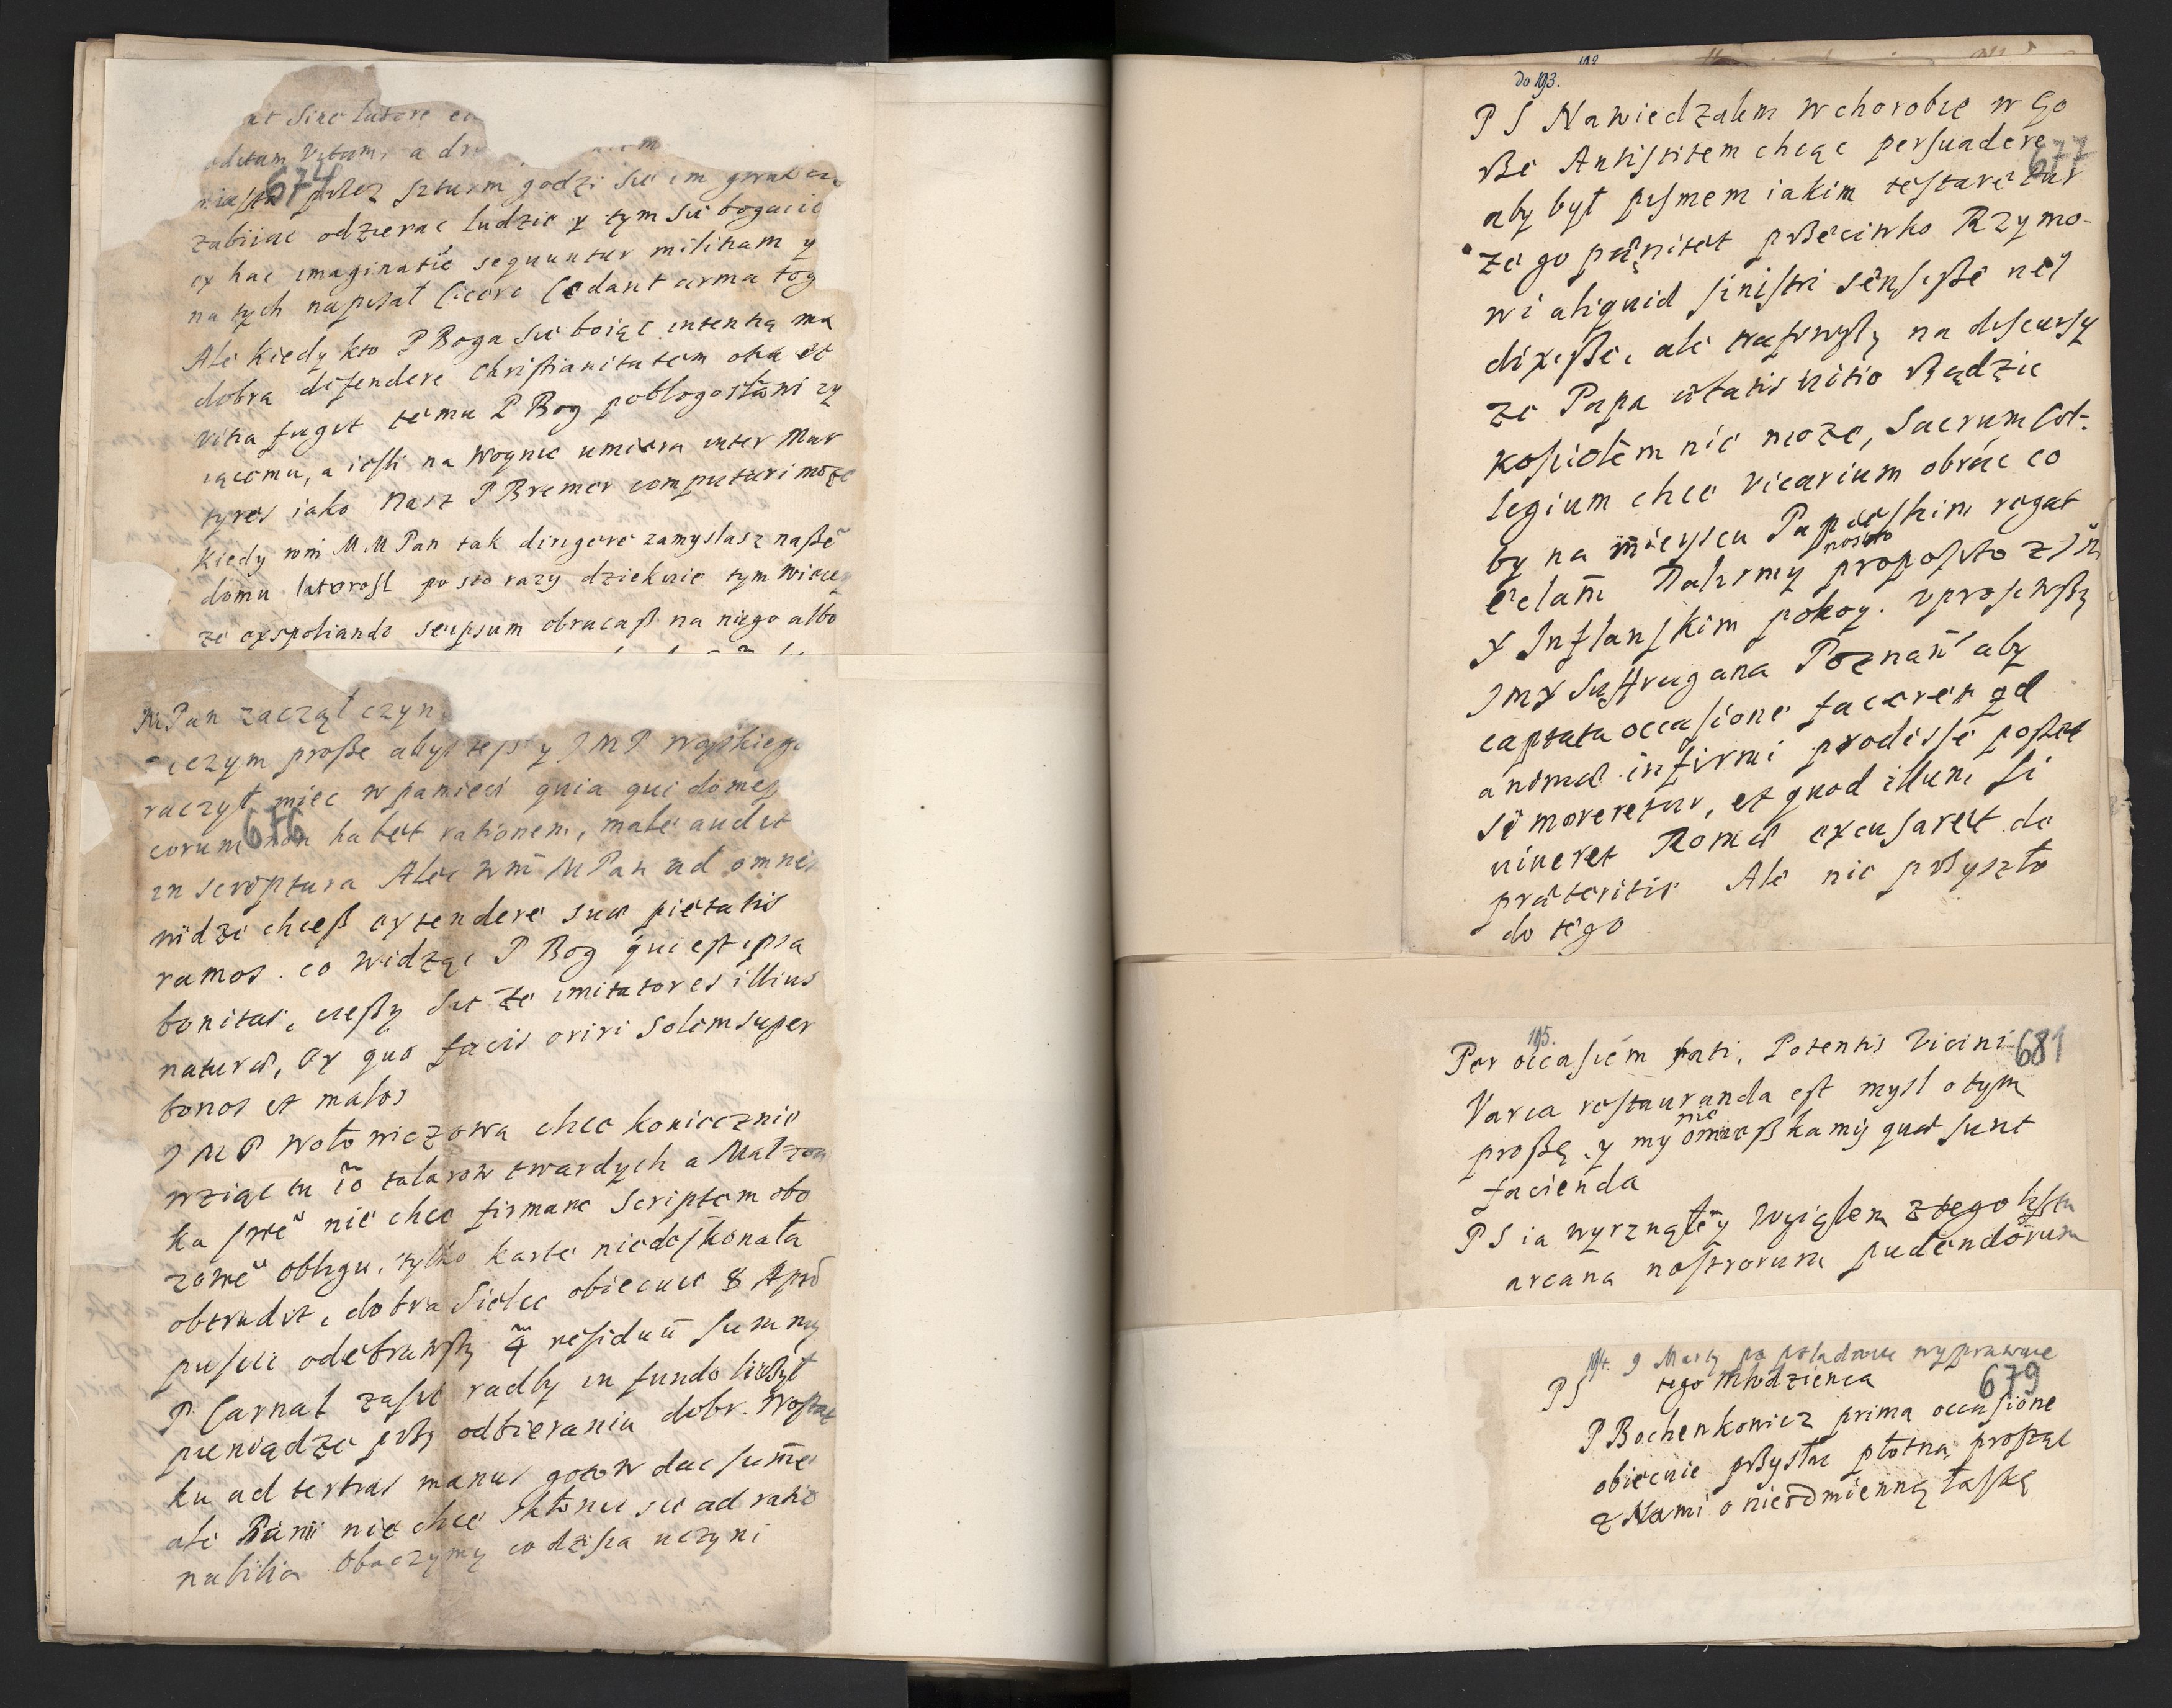 at sine labore
editam Vitam, a
674
przez szturm godzi się im
zabiiac odzierac ludzie y tym się bogacic
ex hac imaginatie sequuntur militiam y
na tych napisał Cicero Cedant arma tog
Ale kiedy kto P Boga się boiąc intentią ma
dobrą defendere Christianitatem ona et
vitia fugit temu P Bog pobłogosławi zy
iącemu, a iesli na Woynie umiera inter Mar
tyres iako Nasz P Bremer computari moze
Kiedy wm M.M Pan tak dirigere zamyslasz naße
domu latorosl po sto razy dziekuie tym wiece
ze exspoliando seipsum obracaß na niego albo
M Pan zaczął czyn
czym proße abys tesz y J M P Woyskiego
raczył miec w pamieci quia qui domes
676
corum non habet rationem, male audit
in scriptura Alec wm M Pan ad omnes
widze chceß extendere suae pietatis
ramos. co widząc P Bog qui est ipsa
bonitas, cießy się ze imitatores illius
naturae, ex quo facis oriri solem super
bonos et malos
J M P Wołowiczowa chce koniecznie
wziąc tu 10 talarow twardych a Małzon
ka swe nie chce firmare Scriptem obo
zowe obligu, tylko karte niedoskonała
obtrudit, dobra Sielec obiecuie 8 Apr
puscic odebrawßy 4 residuu summy
P Carnal zasie radby in fundo liczył
pieniądze przy odbieraniu dobr. Wostat
ku ad tertias manus gotow dac summe
ale Pani nie chce skłonic sie ad ratio
nabilia Obaczymy co dzisia uczyni
do 193.
P S Nawiedzałem w chorobie w Go
ße Antistitem chcąc persuadere
677
aby był pismem iakim testaretur
ze go paenitet przeciwko Rzymo-
wi aliquid sinistri sensisse nec
dixisse, ale trafiwßy na discursy
ze Papa aetatis uitio ßądzic
kosciołem nie moze, Sacrum Col-
legium chce Vicarium obrac co
by na mieyscu Papieskim regat
ecclam Nalismy proposito nostro z
X Inflanskim pokoy. uprosiwßy
J m X Suffragana Poznan aby
captata occasione faceret qd
animae infirmi prodesse posset
si moreretur, et quod illum si
uiueret Romae excusaret de
praeteritis Ale nie przyszło
do tego
195.
Per occasiem fati, Potentis Vicini
681
Varca restauranda est mysl o tym
proßę, y my nie omießkamy quae sunt
facienda
P S ia wyrznąłem y wyiąłem z tego listu
arcana nostrorum pudendorum
194. 9 Marty po południu wyprawuie
P S tego młodzienca
679
P Bochenkowicz prima occasione
obiecuie przysłac płotna prosząc
z Nami o nieodmienną łaskę